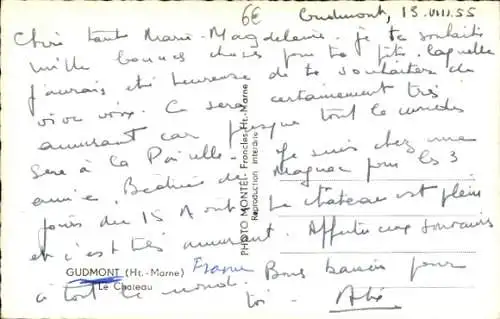 6€
Gudmont, 13.VIII.55
Chère tante Marie-Magdeleine. je te souhaite
mille bonnes choses pour ta fête. laquelle
j'aurais été heureuse de te souhaiter de
vive voix. Ce sera certainement très
amusant car presque tout le monde
sera à la Je suis chez une
amie. Béatrice de pour les 3
jours du 15 Août. Le château est plein
et c'est très amusant. Affectueux souvenirs
à tout le monde. Bons baisers pour
toi.
France
GUDMONT (Ht.-Marne)
Le Château
PHOTO MONTEL - Froncles-Ht.-Marne
Reproduction interdite